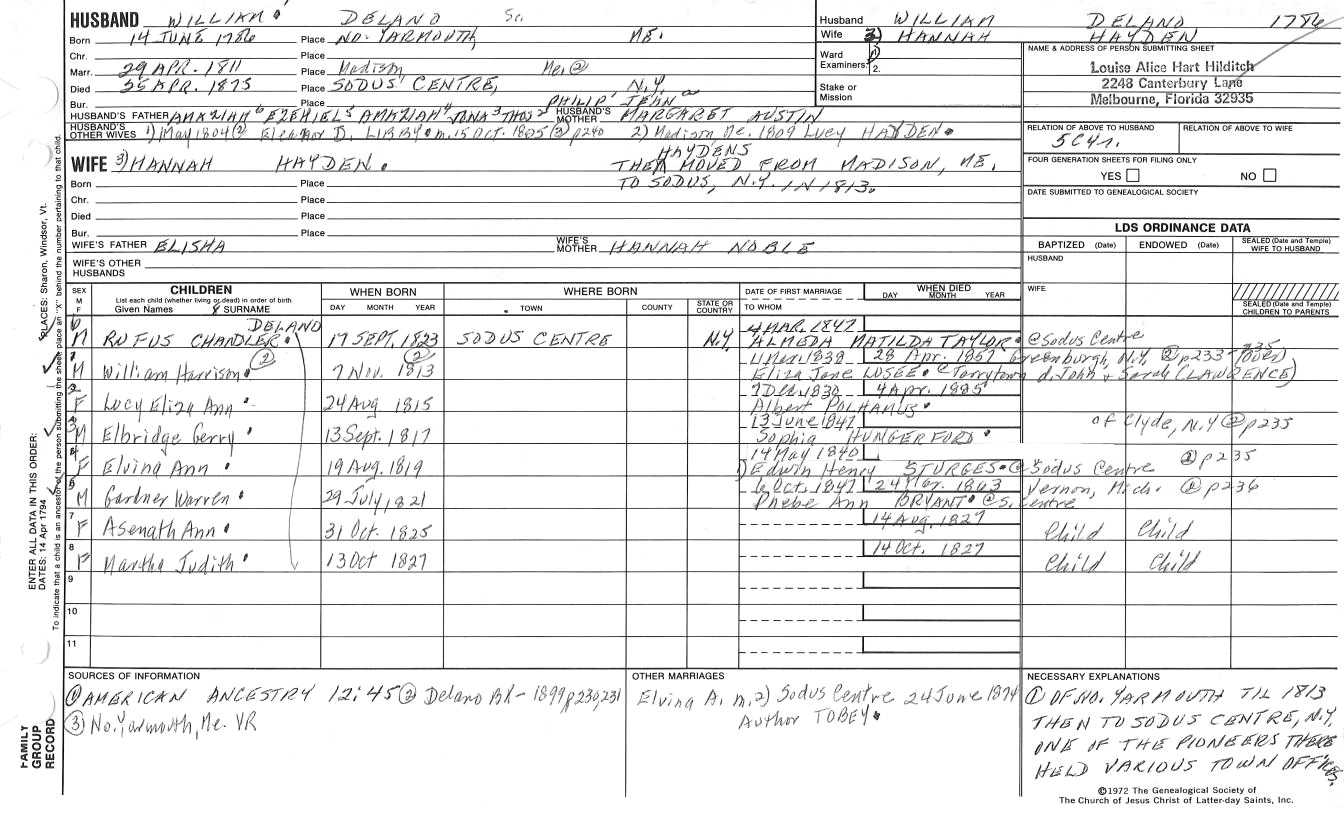 HUSBAND WILLIAM DELANO Sr.
Born 14 JUNE 1786 Place NO. YARMOUTH, ME.
Chr. Place
Marr. 29 APR. 1811 Place Madison Me. ②
Died 25 APR. 1875 Place SODUS CENTRE, N.Y.
Bur. Place PHILIP JEAN
HUSBAND'S FATHER AMAZIAH⁶ EZEKIEL⁵ AMAZIAH⁴ JONA³ THOS² HUSBAND'S MOTHER MARGARET AUSTIN
HUSBAND'S OTHER WIVES 1) May 1804 ② Eleanor D. LIBBY m. 15 OCT. 1805 ③ p240 2) Madison Me. 1809 Lucy HAYDEN.
Husband WILLIAM DELANO 1786
Wife 3) HANNAH HAYDEN
Ward 1.
Examiners: 2.
Stake or Mission
NAME & ADDRESS OF PERSON SUBMITTING SHEET
Louise Alice Hart Hilditch
2248 Canterbury Lane
Melbourne, Florida 32935
RELATION OF ABOVE TO HUSBAND RELATION OF ABOVE TO WIFE
5C4r.
FOUR GENERATION SHEETS FOR FILING ONLY
YES NO
DATE SUBMITTED TO GENEALOGICAL SOCIETY
WIFE 3) HANNAH HAYDEN.
HAYDENS
THEN MOVED FROM MADISON, ME.
TO SODUS, N.Y. IN 1813.
Born Place
Chr. Place
Died Place
Bur. Place
WIFE'S FATHER ELISHA WIFE'S MOTHER HANNAH NOBLE
WIFE'S OTHER HUSBANDS
LDS ORDINANCE DATA
BAPTIZED (Date) ENDOWED (Date) SEALED (Date and Temple) WIFE TO HUSBAND
HUSBAND
WIFE
SEALED (Date and Temple) CHILDREN TO PARENTS
SEX M F CHILDREN List each child (whether living or dead) in order of birth Given Names SURNAME WHEN BORN DAY MONTH YEAR WHERE BORN TOWN COUNTY STATE OR COUNTRY DATE OF FIRST MARRIAGE TO WHOM WHEN DIED DAY MONTH YEAR
6 M RUFUS CHANDLER DELANO 17 SEPT. 1823 SODUS CENTRE N.Y. 4 MAR. 1847 ALMEDA MATILDA TAYLOR. @ Sodus Centre
1 M William Harrison ② 7 Nov. 1813 ② 1838 28 Apr. 1867 Greenburgh, N.Y. ② p233-235 (over)
Eliza Jane LOSEE. @ Tarrytown d. John & Sarah (LAWRENCE)
2 F Lucy Eliza Ann 24 Aug 1815 7 Dec. 1830 4 Apr. 1885 Albert POLHAMUS.
3 M Elbridge Gerry 13 Sept. 1817 13 June 1847 Sophia HUNGERFORD. of Clyde, N.Y ② p235
4 F Elvina Ann 19 Aug. 1819 14 May 1840 1) Edwin Henry STURGES. @ Sodus Centre ② p235
5 M Gardner Warren 29 July, 1821 6 Oct. 1847 1863 Phebe Ann BRYANT @ S. Centre Vernon, Mich. ② p236
7 F Asenath Ann 31 Oct. 1825 14 Aug. 1827 Child Child
8 F Martha Judith 13 Oct 1827 14 Oct. 1827 Child Child
9
10
11
SOURCES OF INFORMATION
① AMERICAN ANCESTRY 12:45 ② Delano Bk - 1899 p230,231
③ No. Yarmouth, Me. VR
OTHER MARRIAGES
Elvina A. m. 2) Sodus Centre 24 June 1874
Author TOBEY.
NECESSARY EXPLANATIONS
① OF NO. YARMOUTH TIL 1813
THEN TO SODUS CENTRE, N.Y.
ONE OF THE PIONEERS THERE
HELD VARIOUS TOWN OFFICES.
©1972 The Genealogical Society of
The Church of Jesus Christ of Latter-day Saints, Inc.
FAMILY GROUP RECORD
ENTER ALL DATA IN THIS ORDER:
DATES: 14 Apr 1794
PLACES: Sharon, Windsor, Vt.
To indicate that a child is an ancestor of the person submitting the sheet, place an "X" behind the number pertaining to that child.